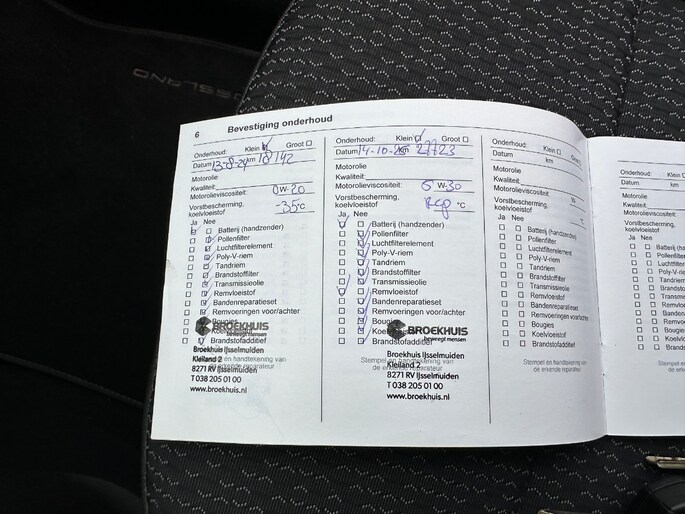 6 Bevestiging onderhoud
Onderhoud: Klein Groot
Datum 13-8-24 km 18142
Motorolie
Kwaliteit:
Motorolieviscositeit: 0 W-20
Vorstbescherming, koelvloeistof -35 °C
Ja Nee
Batterij (handzender)
Pollenfilter
Luchtfilterelement
Poly-V-riem
Tandriem
Brandstoffilter
Transmissieolie
Remvloeistof
Bandenreparatieset
Remvoeringen voor/achter
Bougies
Brandstofadditief
BROEKHUIS
beweegt mensen
Broekhuis IJsselmuiden
Kleiland 2
8271 RV IJsselmuiden
T 038 205 01 00
www.broekhuis.nl
Onderhoud: Klein Groot
Datum 14-10-25 km 27723
Motorolie
Kwaliteit:
Motorolieviscositeit: 5 W-30
Vorstbescherming, koelvloeistof °C
Ja Nee
Batterij (handzender)
Pollenfilter
Luchtfilterelement
Poly-V-riem
Tandriem
Brandstoffilter
Transmissieolie
Remvloeistof
Bandenreparatieset
Remvoeringen voor/achter
Bougies
Brandstofadditief
BROEKHUIS
beweegt mensen
Stempel en handtekening van
de erkende reparateur
Broekhuis IJsselmuiden
Kleiland 2
8271 RV IJsselmuiden
T 038 205 01 00
www.broekhuis.nl
Onderhoud: Klein Groot
Datum km
Motorolie
Kwaliteit:
Motorolieviscositeit: W-
Vorstbescherming, koelvloeistof °C
Ja Nee
Batterij (handzender)
Pollenfilter
Luchtfilterelement
Poly-V-riem
Tandriem
Brandstoffilter
Transmissieolie
Remvloeistof
Bandenreparatieset
Remvoeringen voor/achter
Bougies
Koelvloeistof
Brandstofadditief
Stempel en handtekening van
de erkende reparateur
Onderhoud: Klein
Datum km
Motorolie
Kwaliteit:
Motorolieviscositeit:
Vorstbescherming, koelvloeistof
Ja Nee